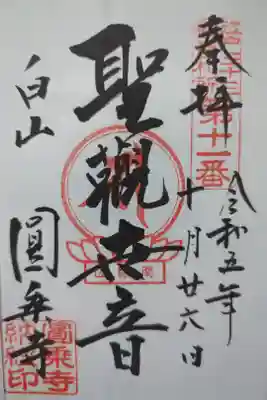 第十一番
奉拝
令和五年
十月廿六日
聖觀世音
白山
圓乗寺
圓乗寺
納経印